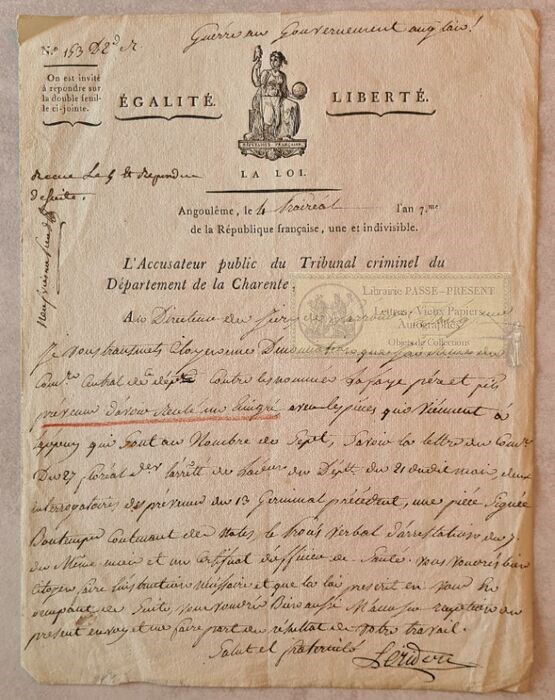 Guerre au Gouvernement anglais!
N.º 153 D2d
On est invité
à répondre sur
la double feuil-
le ci-jointe.
ÉGALITÉ.
LIBERTÉ.
RÉPUBLIQUE FRANÇAISE
LA LOI.
Recue Le 5 et Repondu
de suite.
Angoulême, le 4 prairéal l'an 7.me
de la République française, une et indivisible.
L'Accusateur public du Tribunal criminel du
Département de la Charente,
Librairie PASSE-PRESENT
Lettres - Vieux Papiers
Autographes
Objets de Collections
Au Directeur du Jury de
Je vous transmets Citoyen une Denonciation que
Com.re Central du dép.t contre les nommés Lafaye pere et fils
prévenus d'avoir Recelé un Emigré avec les pièces qui viennent à
appuy qui sont au Nombre de Sept, Savoir la lettre du Com.re
Du 27 floréal der l'arrêté de du Dépt. du 21 dudit mois, deux
interrogatoires des prévenus du 13 Germinal précédent, une pièce Signée
contenant des Notes, le procès verbal d'arrestation du 7.
du Même mois et un Certificat d'officier de Santé. vous voudrés bien
citoyen faire l'instruction nécessaire et que la loi prescrit en vous
occupant de Suite vous voudrés Bien aussi M'accuser reception du
present envoy et me faire part du résultat de votre travail.
Salut et fraternité